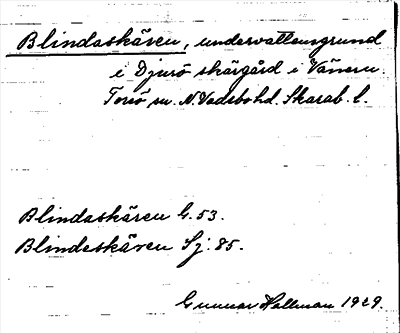 Blindaskären, undervattensgrund
i Djurö skärgård i Vänern.
Torsö sn. N. Vadsbo hd. Skarab. l.
Blindaskären G. 53.
Blindeskären Sj. 85.
Gunnar Hallman 1929.